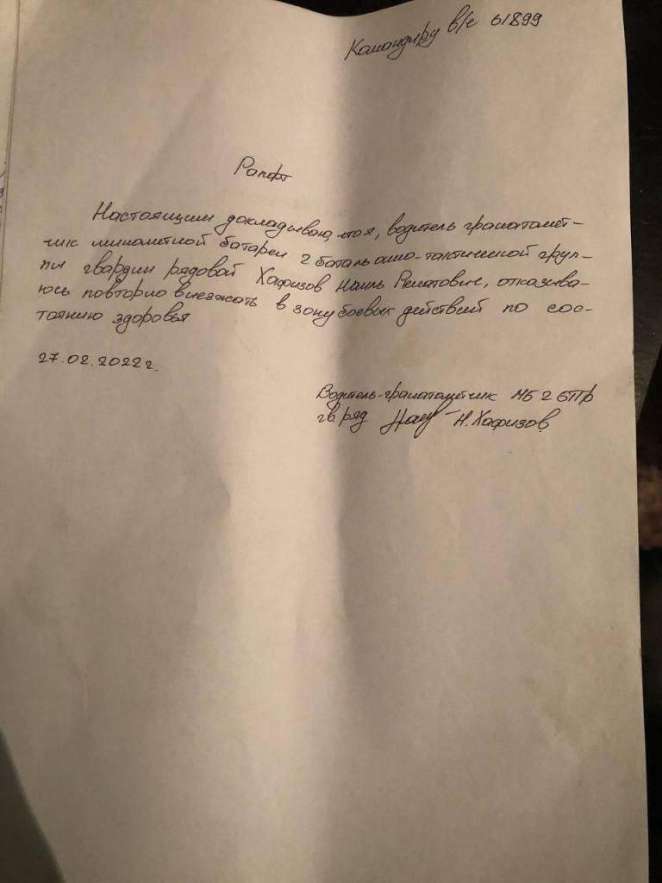 Командиру в/ч 61899
Рапорт
Настоящим докладываю, что я, водитель гранатомёт-
чик миномётной батареи 2 батальонно-тактической груп-
пы гвардии рядовой Хафизов Наиль Решатович, отказыва-
юсь повторно выезжать в зону боевых действий по сос-
тоянию здоровья
27.02.2022 г.
Водитель-гранатомётчик МБ 2 БТГр
гв. ряд. Н. Хафизов